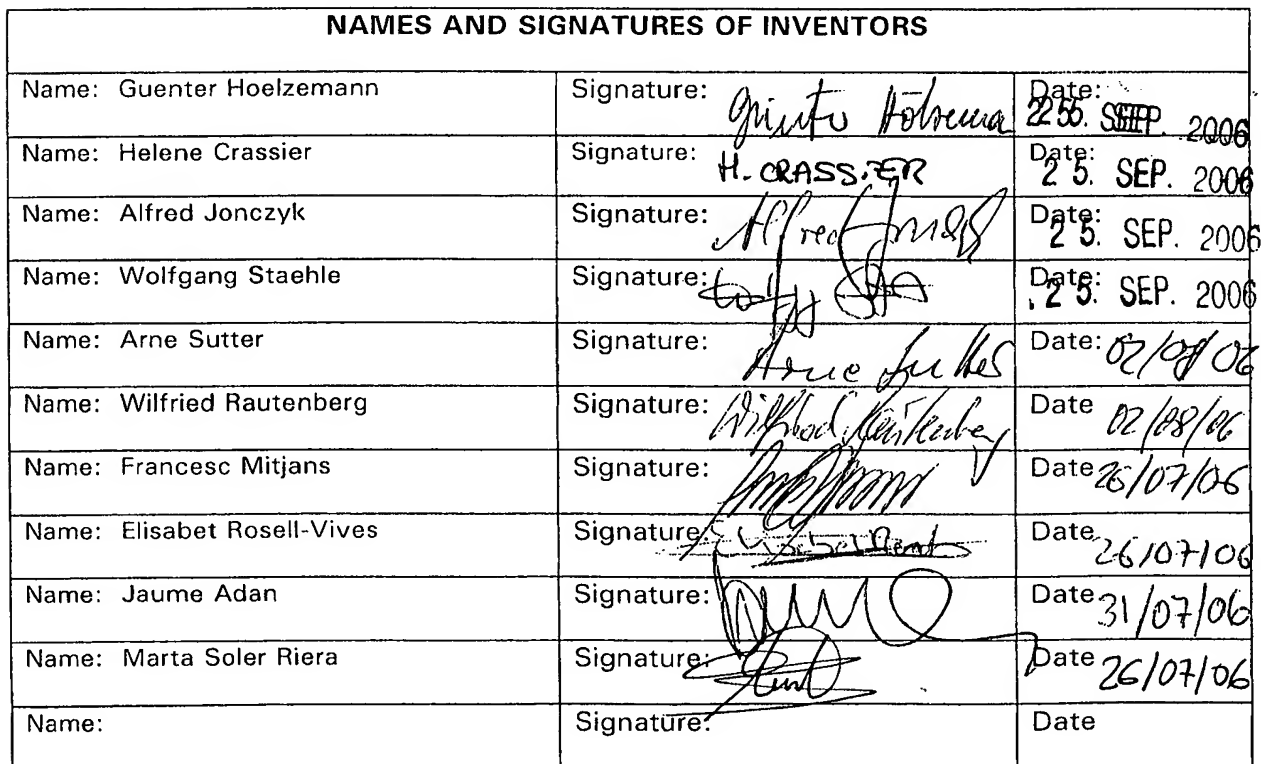 NAMES AND SIGNATURES OF INVENTORS
Name: Guenter Hoelzemann Signature: Date: SEP. 2006
Name: Helene Crassier Signature: H. CRASSIER Date: 25. SEP. 2006
Name: Alfred Jonczyk Signature: Alfred Date: 25. SEP. 2006
Name: Wolfgang Staehle Signature: Date: 25. SEP. 2006
Name: Arne Sutter Signature: Arne Sutter Date: 02/08/06
Name: Wilfried Rautenberg Signature: Wilfried Rautenberg Date 02/08/06
Name: Francesc Mitjans Signature: Date 26/07/06
Name: Elisabet Rosell-Vives Signature: Date 26/07/06
Name: Jaume Adan Signature: Date 31/07/06
Name: Marta Soler Riera Signature: Date 26/07/06
Name: Signature: Date